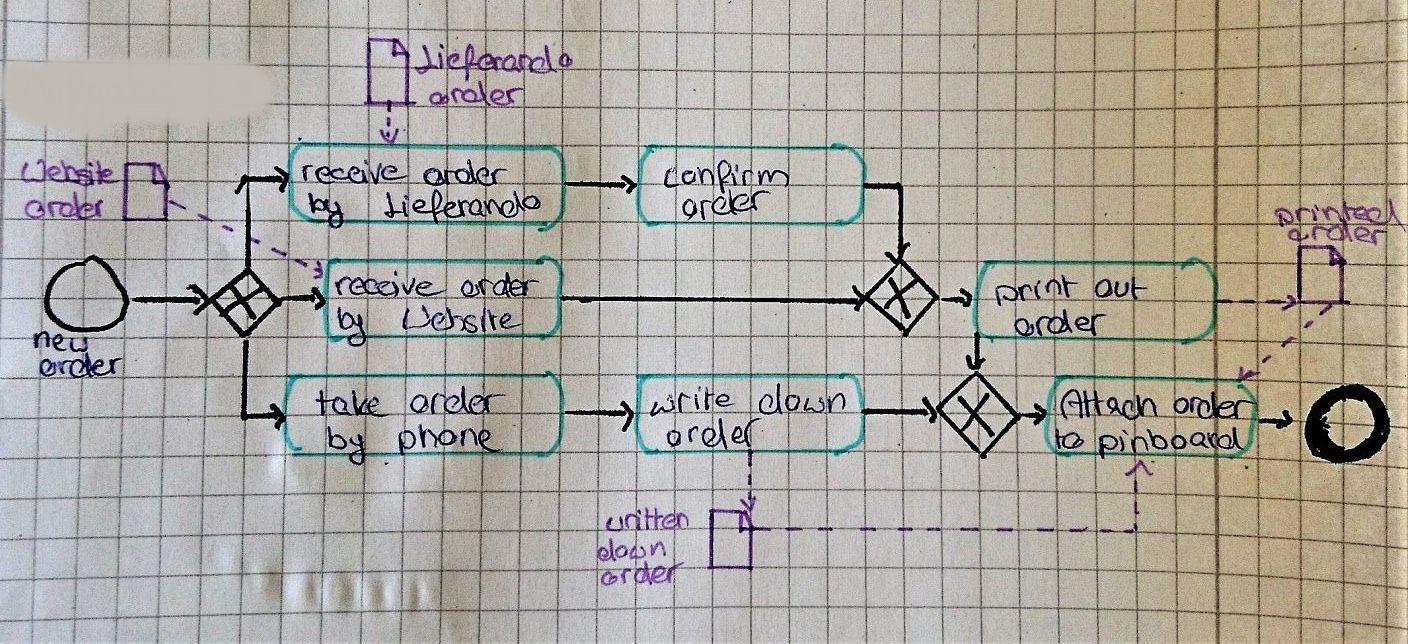 Lieferando
order
Website
order
receive order
by Lieferando
confirm
order
printed
order
new
order
receive order
by Website
print out
order
take order
by phone
write down
order
Attach order
to pinboard
written
down
order